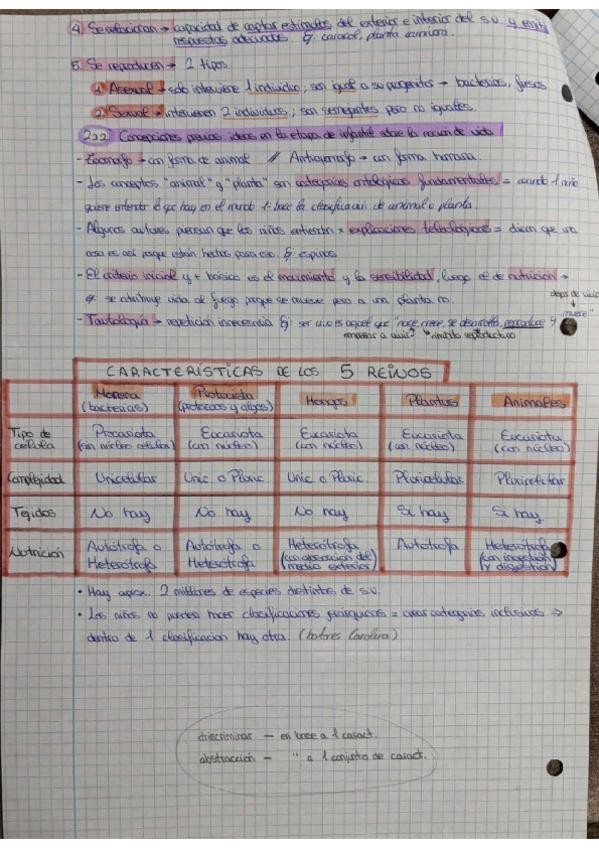 4. Se relacionan → capacidad de captar estímulos del exterior e interior del s.v. y emitir
respuestas adecuadas. Ej: caracol, planta carnívora.
5. Se reproducen → 2 tipos
1. Asexual → solo interviene 1 individuo; son igual a su progenitor → bacterias,
2. Sexual → intervienen 2 individuos; son semejantes pero no iguales.
2.2.2. Concepciones previas: ideas en la etapa de infantil sobre la noción de vida
- Zoomorfo → con forma de animal // Antropomorfo → con forma humana.
- Los conceptos "animal" y "planta" son categorías ontológicas fundamentales = cuando 1 niño
quiere entender lo que hay en el mundo 1º hace la clasificación de animal o planta.
- Algunos autores piensan que los niños entienden x explicaciones teleológicas = dicen que una
cosa es así porque están hechas para eso. Ej: espinas
- El criterio inicial y + básico es el movimiento y la sensibilidad, luego el de nutrición →
Ej: se atribuye vida al fuego porque se mueve pero a una planta no.
dejar de vivir
- Tautología → repetición innecesaria Ej: ser vivo es aquel que "nace, crece, se desarrolla, reproduce y muere"
empezar a vivir? sentido reproductivo
CARACTERÍSTICAS DE LOS 5 REINOS
Monera (bacterias) Protoctista (protozoos y algas) Hongos Plantas Animales
Tipo de célula Procariota (sin núcleo celular) Eucariota (con núcleo) Eucariota (con núcleo) Eucariota (con núcleo) Eucariota (con núcleo)
Complejidad Unicelular Unic o Pluric Unic o Pluric. Pluricelular Pluricelular
Tejidos No hay No hay No hay Sí hay Sí hay
Nutrición Autótrofa o Heterótrofa Autótrofa o Heterótrofa Heterótrofa (con absorción del medio exterior) Autótrofa Heterótrofa (con ingestión y digestión)
• Hay aprox. 2 millones de especies distintas de s.v.
• Los niños no pueden hacer clasificaciones jerárquicas = crear categorías inclusivas ⇒
dentro de 1 clasificación hay otra. (botones Carolina)
discriminar — en base a 1 caract.
abstracción — " a 1 conjunto de caract.